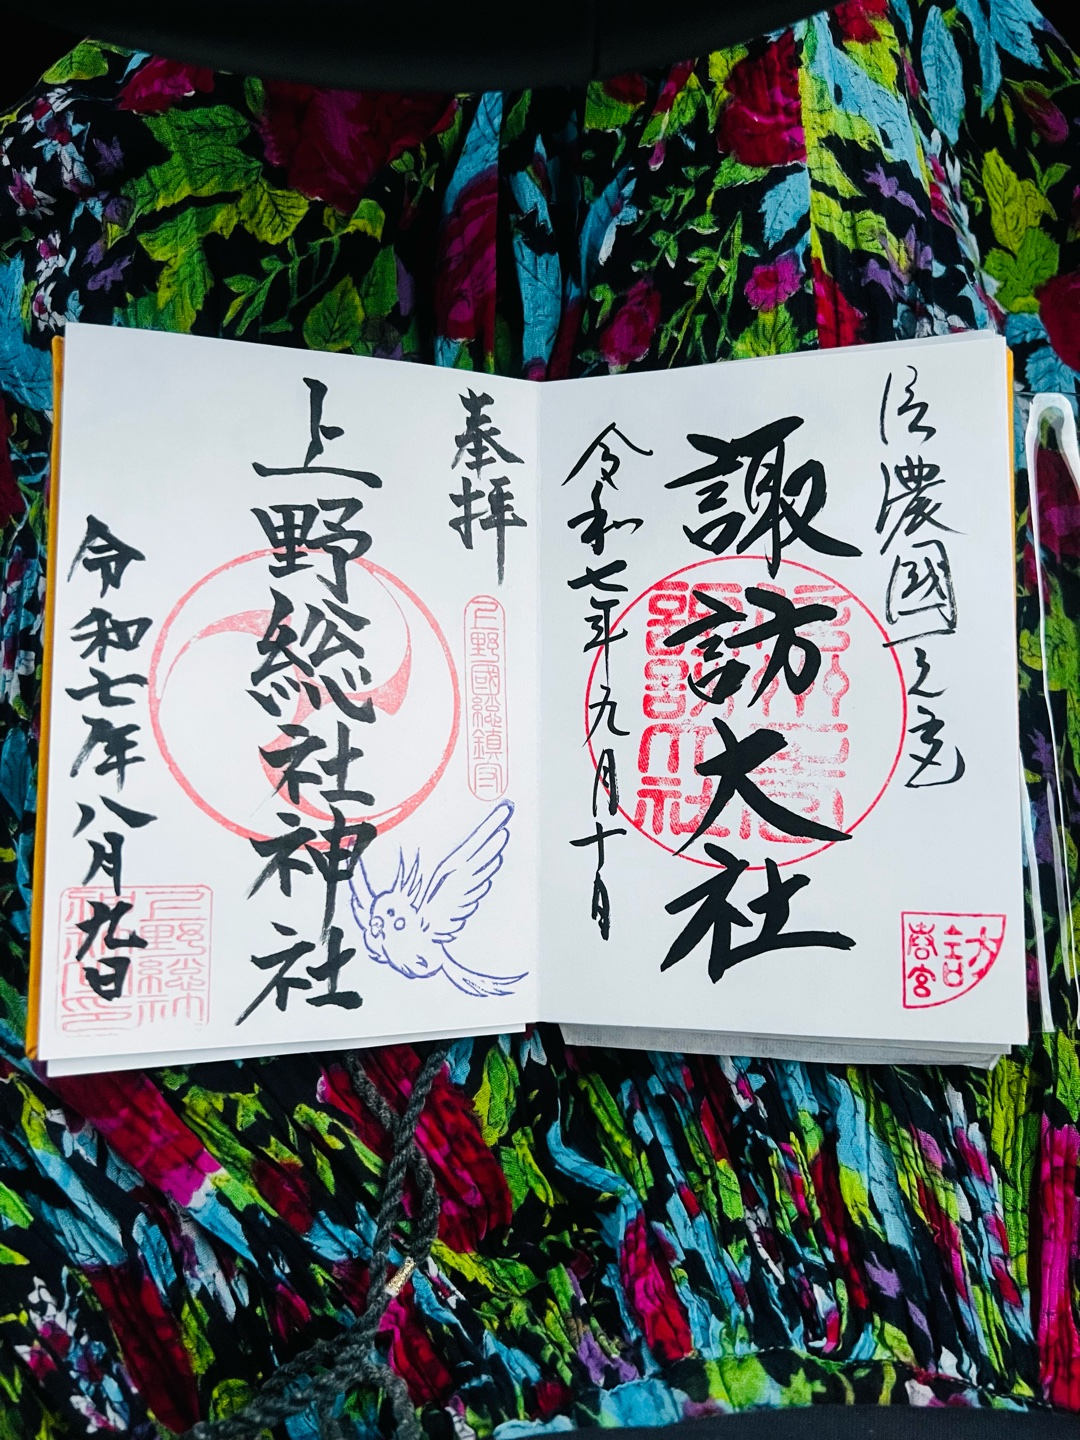 信濃國一之宮
諏訪大社
諏訪大社
令和七年九月十日
春宮
奉拝
上野國総鎮守
上野総社神社
令和七年八月九日
上野総社
神社之印